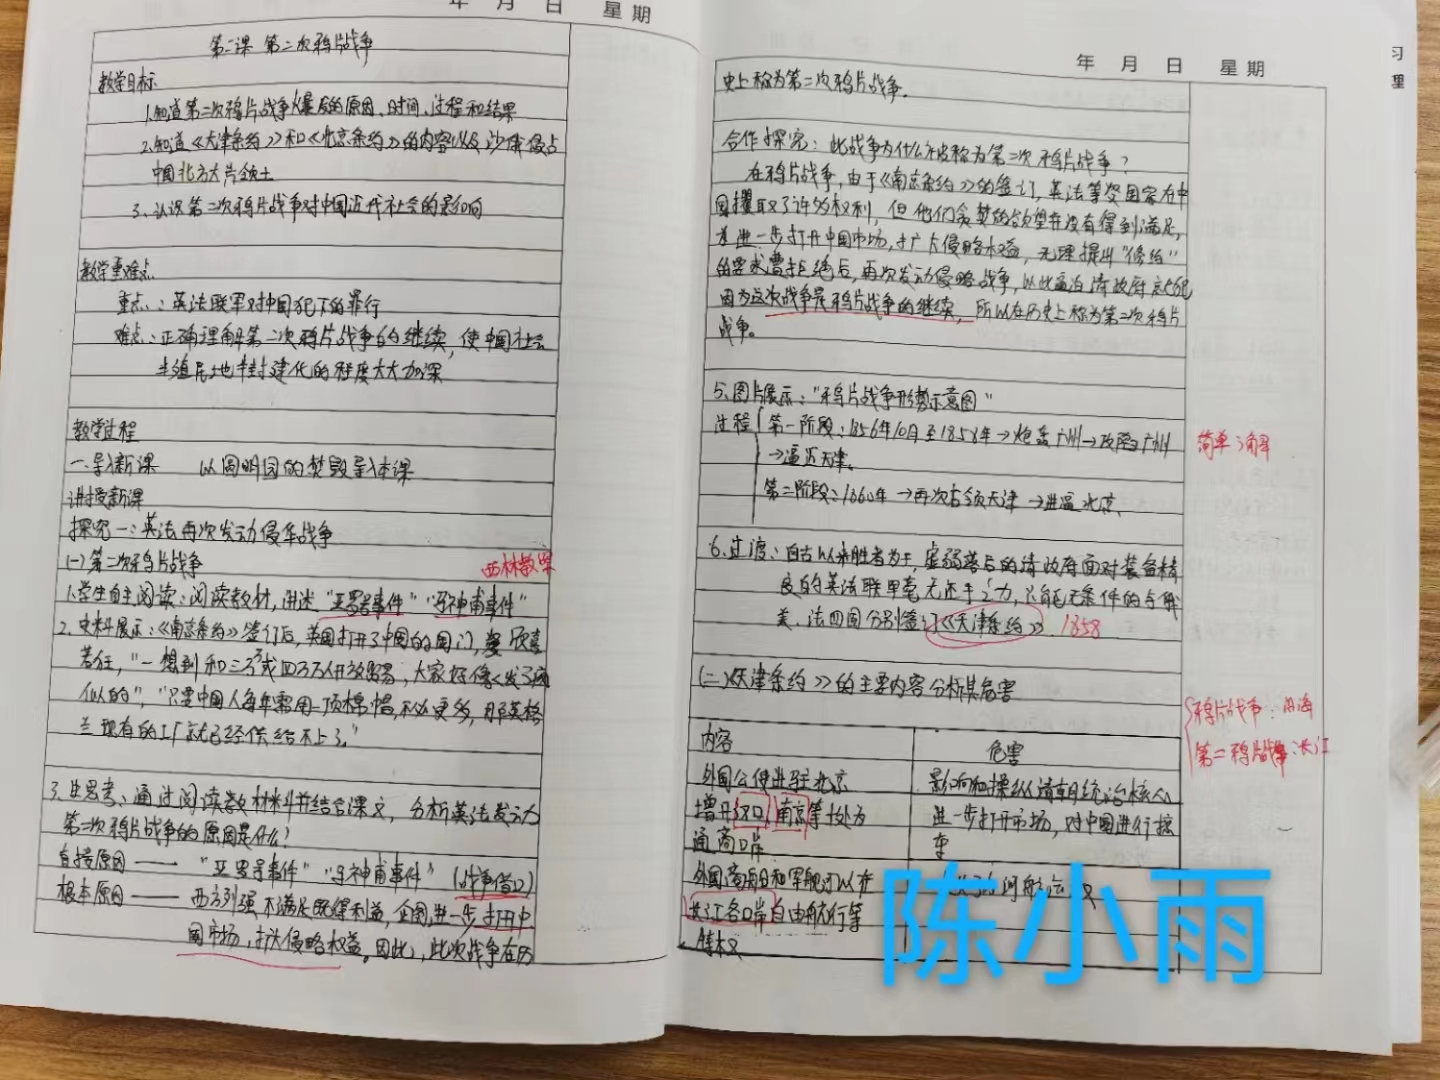 年 月 日 星期
第二课 第二次鸦片战争
教学目标
1.知道第二次鸦片战争爆发的原因、时间、过程和结果
2.知道《天津条约》和《北京条约》的内容以及沙俄侵占
中国北方大片领土
3.认识第二次鸦片战争对中国近代社会的影响
教学重难点
重点:英法联军对中国犯下的罪行
难点:正确理解第二次鸦片战争的继续,使中国社会
半殖民地半封建化的程度大大加深
教学过程
一.导入新课 以圆明园的焚毁导入本课
讲授新课
探究一:英法再次发动侵华战争
(一)第二次鸦片战争
西林教案
1.学生自主阅读:阅读教材,讲述"亚罗号事件""马神甫事件"
2.史料展示:《南京条约》签订后,英国打开了中国的国门,欣喜
若狂,"一想到和三万或四万万人开放贸易,大家好像发了疯
似的","只要中国人每年需用一顶棉帽,不必更多,那英格
兰现有的工厂就已经供给不上了。"
3.生思考:通过阅读教材料并结合课文,分析英法发动
第二次鸦片战争的原因是什么?
直接原因—— "亚罗号事件""马神甫事件"(战争借口)
根本原因—— 西方列强不满足既得利益,企图进一步打开中
国市场,扩大侵略权益。因此,此次战争在历
年 月 日 星期
习
理
史上称为第二次鸦片战争。
合作探究:此战争为什么被称为第二次鸦片战争?
在鸦片战争,由于《南京条约》的签订,英法等资国家在中
国攫取了许多权利,但他们贪婪的欲望并没有得到满足,
为进一步打开中国市场,扩大侵略权益,无理提出"修约"
的要求遭拒绝后,再次发动侵略战争,以此逼迫清政府
因为这次战争是鸦片战争的继续,所以在历史上称为第二次鸦片
战争。
5.图片展示:"鸦片战争形势示意图"
过程 第一阶段:1856年10月至1858年→炮轰广州→攻陷广州
→逼近天津。
第二阶段:1860年→再次占领天津→进逼北京。
简单了解
6.过渡:自古以来胜者为王,虚弱落后的清政府面对装备精
良的英法联军毫无还手之力,只能无条件的与俄
美、法四国分别签订《天津条约》。1858
(二)《天津条约》的主要内容分析其危害
鸦片战争:沿海
第二鸦片战争:长江
内容 危害
外国公使进驻北京 影响和操纵清朝统治核心
增开汉口、南京等几处为 进一步打开市场,对中国进行侵
通商口岸
外国商船和军舰可以在
长江各口岸自由航行等
特权
陈小雨